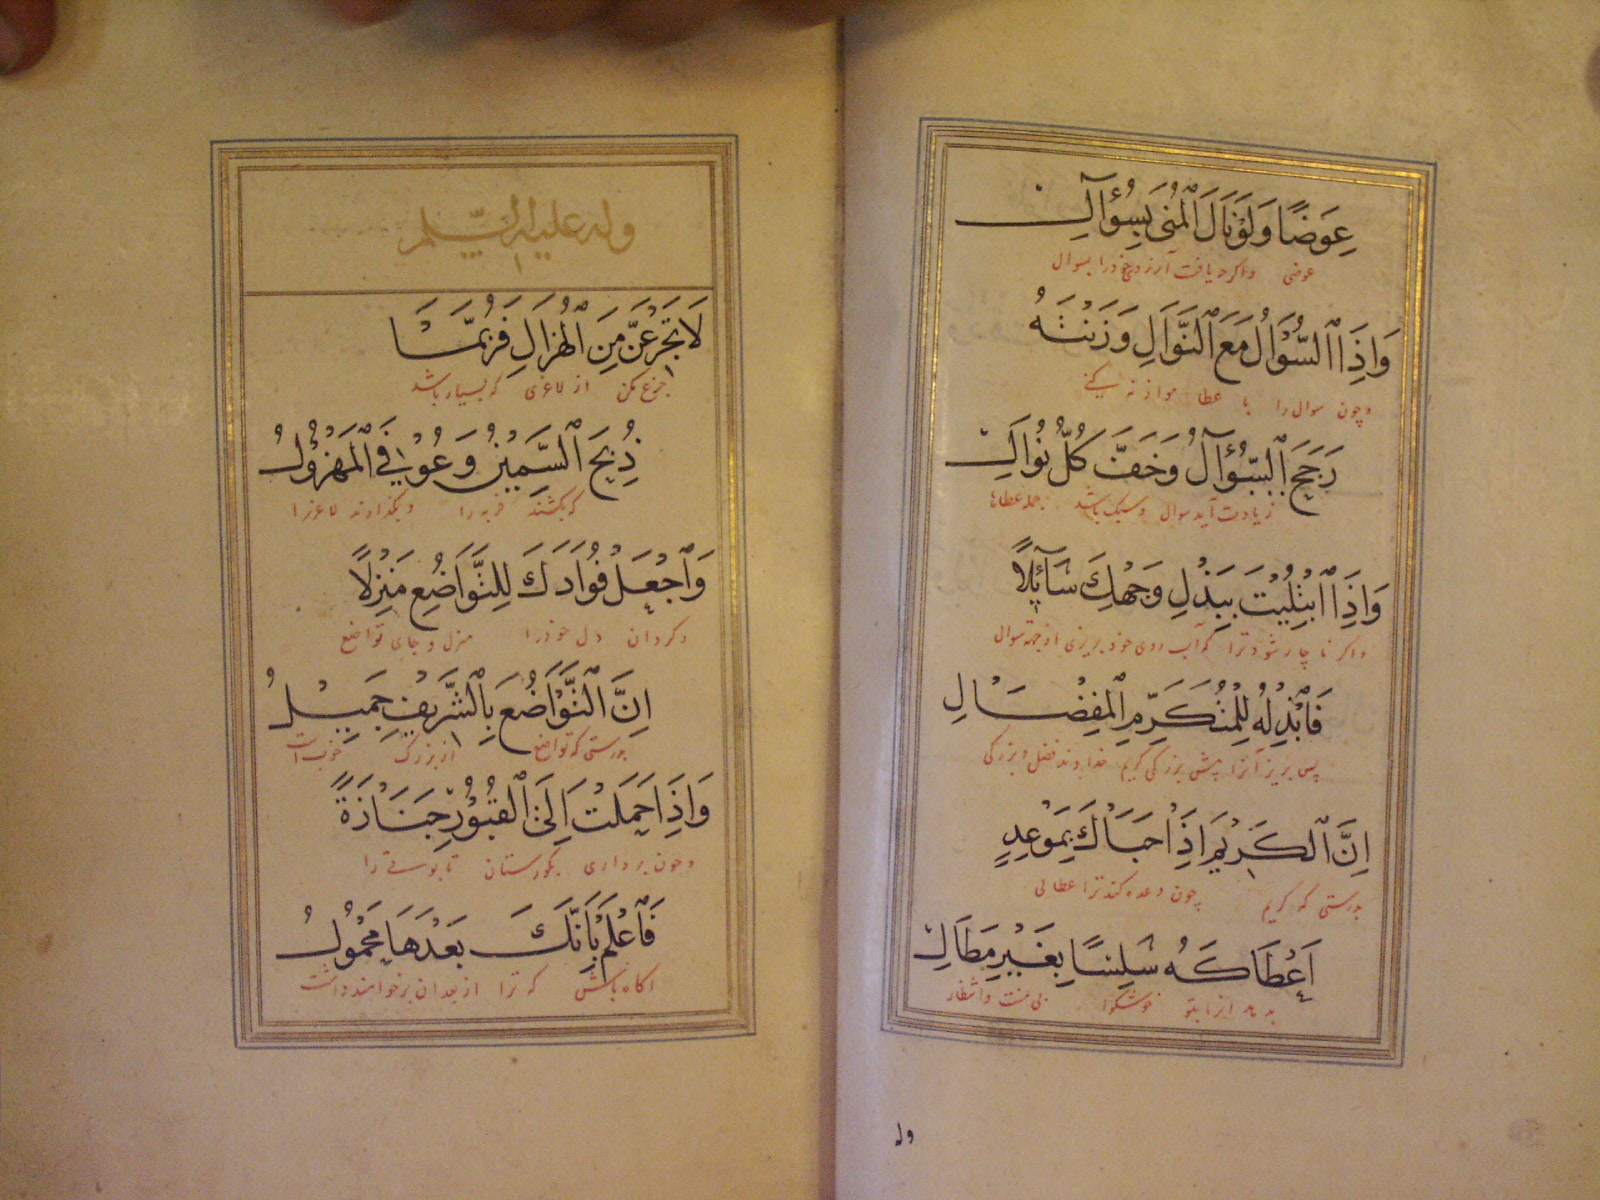 عِوَضًا وَلَوْ نَالَ الْمُنَى بِسُؤَآلِ
عوضی واکر دریافت آرزوی خود را بسوال
وَاِذَا السُّؤَالُ مَعَ النَّوَالِ وَزَنْتَهُ
و چون سوال را با عطا موازنه کنی
رَجَحَ السُّؤَآلُ وَخَفَّ كُلُّ نَوَالِ
زیادت آید سوال و سبک باشد جمله عطاها
وَاِذَا ابْتُلِيْتَ بِبَذْلِ وَجْهِكَ سَآئِلًا
واکر ناچار شود ترا که آب روی خود بریزی از جهة سوال
فَابْذُلْهُ لِلْمُتَكَرِّمِ الْمِفْضَالِ
پس بریز آنرا پیش بزرکی کریم خداوند فضل و بزرکی
اِنَّ الْكَرِيْمَ اِذَا حَبَاكَ بِمَوْعِدٍ
بدرستی که کریم چون وعده کند ترا عطائی
اَعْطَاكَهُ سَلِسًا بِغَيْرِ مِطَالِ
بدهد انرا بتو بی منت وانتظار
وله
وله عليه السلام
لَا تَجْزَعَنَّ مِنَ الْهُزَالِ فَرُبَّمَا
جزع مکن از لاغری که بسیار باشد
ذُبِحَ السَّمِيْنُ وَعُوْفِيَ الْمَهْزُوْلُ
که بکشند فربه را و بکذارند لاغر را
وَاجْعَلْ فُؤَادَكَ لِلتَّوَاضُعِ مَنْزِلًا
و کردان دل خود را منزل و جای تواضع
اِنَّ التَّوَاضُعَ بِالشَّرِيْفِ جَمِيْلُ
بدرستی که تواضع از بزرک خوب است
وَاِذَا حَمَلْتَ اِلَى الْقُبُوْرِ جَنَازَةً
و چون برداری بکورستان تابوتی را
فَاعْلَمْ بِاَنَّكَ بَعْدَهَا مَحْمُوْلُ
اکاه باش که ترا از بعد ان برخواهند داشت